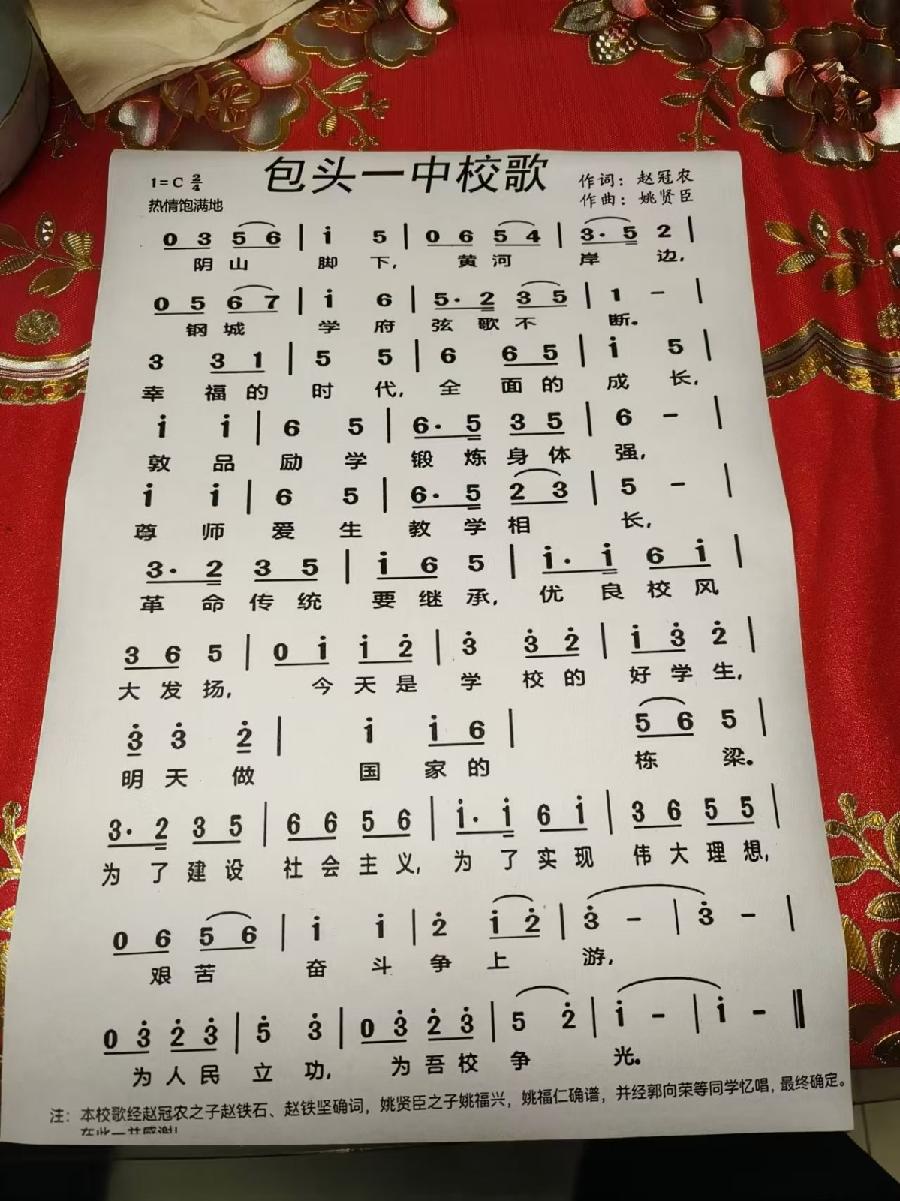 包头一中校歌
1=C 2/4
作词：赵冠农
热情饱满地
作曲：姚贤臣
0 3 5 6 | i 5 | 0 6 5 4 | 3· 5 2 |
阴山 脚下, 黄河 岸边,
0 5 6 7 | i 6 | 5· 2 3 5 | 1 - |
钢城 学府 弦歌不 断。
3 3 1 | 5 5 | 6 6 5 | i 5 |
幸福的 时代, 全面的 成长,
i i | 6 5 | 6· 5 3 5 | 6 - |
敦品 励学 锻炼身体 强,
i i | 6 5 | 6· 5 2 3 | 5 - |
尊师 爱生 教学相 长,
3· 2 3 5 | i 6 5 | i· i 6 i |
革命传统 要继承, 优良校风
3 6 5 | 0 i i 2̇ | 3̇ 3̇ 2̇ | i 3̇ 2̇ |
大发扬, 今天是 学校的 好学生,
3̇ 3̇ 2̇ | i i 6 | 5 6 5 |
明天做 国家的 栋梁。
3· 2 3 5 | 6 6 5 6 | i· i 6 i | 3 6 5 5 |
为了建设 社会主义, 为了实现 伟大理想,
0 6 5 6 | i i | 2̇ i 2̇ | 3̇ - | 3̇ - |
艰苦 奋斗 争上 游,
0 3̇ 2̇ 3̇ | 5̇ 3̇ | 0 3̇ 2̇ 3̇ | 5 2̇ | i - | i - ‖
为人民 立功, 为吾校 争 光。
注：本校歌经赵冠农之子赵铁石、赵铁坚确词，姚贤臣之子姚福兴，姚福仁确谱，并经郭向荣等同学忆唱，最终确定。
在此一并感谢！